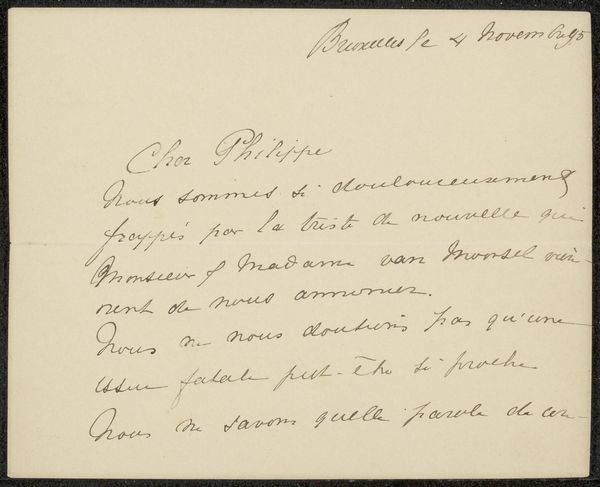 Bruxelles le 4 Novembre 95
Cher Philippe
Nous sommes si douloureusement
frappés par la triste de nouvelle que
Monsieur & Madame van Moorsel vien-
nent de nous annoncer.
Nous ne nous doutions pas qu'une
issue fatale put-être si proche
Nous ne savons quelle parole de con-